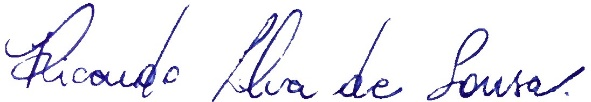 Ricardo Silva de Sousa.